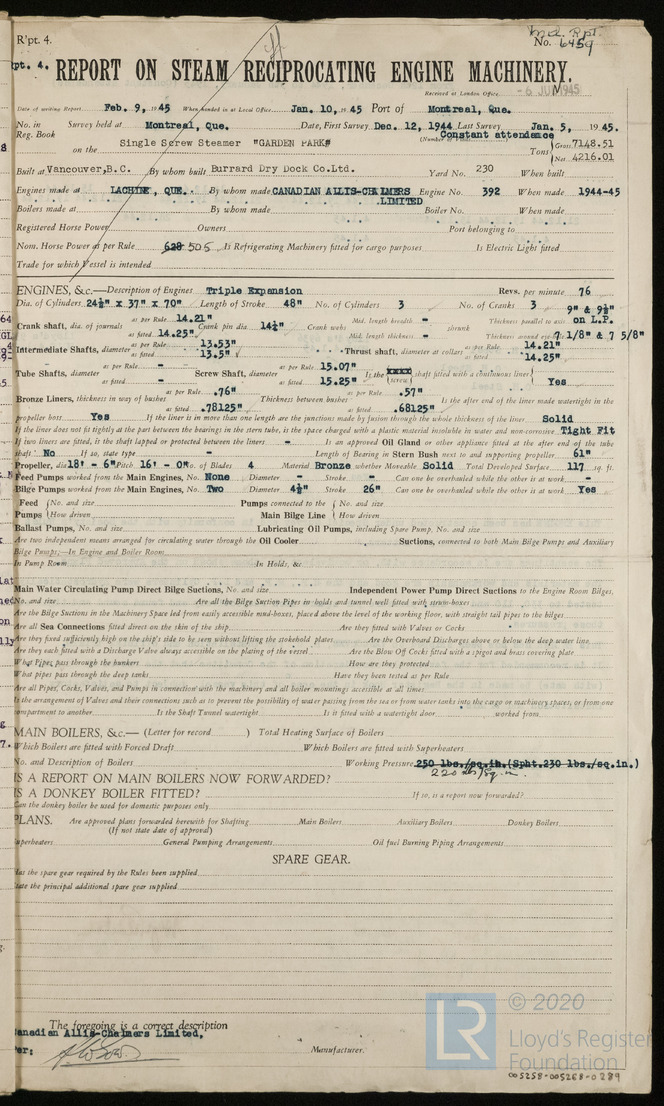 R'pt. 4.
Mtl. Rpt.
No. 6459
pt. 4. REPORT ON STEAM RECIPROCATING ENGINE MACHINERY.
Received at London Office - 6 JUN 1945
Date of writing Report Feb. 9, 1945 When handed in at Local Office Jan. 10, 1945 Port of Montreal, Que.
No. in Survey held at Montreal, Que. Date, First Survey Dec. 12, 1944 Last Survey Jan. 5, 1945.
Reg. Book Constant attendance
on the Single Screw Steamer "GARDEN PARK" Tons Gross 7148.51
Net 4216.01
Built at Vancouver, B.C. By whom built Burrard Dry Dock Co.Ltd. Yard No. 230 When built
Engines made at LACHINE, QUE. By whom made CANADIAN ALLIS-CHALMERS LIMITED Engine No. 392 When made 1944-45
Boilers made at By whom made Boiler No. When made
Registered Horse Power Owners Port belonging to
Nom. Horse Power as per Rule 628 505 Is Refrigerating Machinery fitted for cargo purposes Is Electric Light fitted
Trade for which Vessel is intended
ENGINES, &c.—Description of Engines Triple Expansion Revs. per minute 76
Dia. of Cylinders 24½" x 37" x 70" Length of Stroke 48" No. of Cylinders 3 No. of Cranks 3
Crank shaft, dia. of journals as per Rule 14.21" as fitted 14.25" Crank pin dia. 14¼" Crank webs Mid. length breadth - Mid. length thickness - shrunk Thickness parallel to axis 9" & 9½" on L.P. Thickness around eyehole 7 1/8" & 7 5/8"
Intermediate Shafts, diameter as per Rule 13.53" as fitted 13.5" Thrust shaft, diameter at collars as per Rule 14.21" as fitted 14.25"
Tube Shafts, diameter as per Rule - as fitted - Screw Shaft, diameter as per Rule 15.07" as fitted 15.25" Is the screw shaft fitted with a continuous liner Yes
Bronze Liners, thickness in way of bushes as per Rule .76" as fitted .78125" Thickness between bushes as per Rule .57" as fitted .68125" Is the after end of the liner made watertight in the
propeller boss Yes If the liner is in more than one length are the junctions made by fusion through the whole thickness of the liner Solid
If the liner does not fit tightly at the part between the bearings in the stern tube, is the space charged with a plastic material insoluble in water and non-corrosive Tight Fit
If two liners are fitted, is the shaft lapped or protected between the liners - Is an approved Oil Gland or other appliance fitted at the after end of the tube
shaft No If so, state type - Length of Bearing in Stern Bush next to and supporting propeller 61"
Propeller, dia. 18' - 6" Pitch 16' - 0" No. of Blades 4 Material Bronze whether Moveable Solid Total Developed Surface 117 sq. ft.
Feed Pumps worked from the Main Engines, No. None Diameter - Stroke - Can one be overhauled while the other is at work -
Bilge Pumps worked from the Main Engines, No. Two Diameter 4½" Stroke 26" Can one be overhauled while the other is at work Yes
Feed Pumps No. and size How driven Pumps connected to the Main Bilge Line No. and size How driven
Ballast Pumps, No. and size Lubricating Oil Pumps, including Spare Pump, No. and size
Are two independent means arranged for circulating water through the Oil Cooler Suctions, connected to both Main Bilge Pumps and Auxiliary
Bilge Pumps;—In Engine and Boiler Room
In Pump Room In Holds, &c
Main Water Circulating Pump Direct Bilge Suctions, No. and size Independent Power Pump Direct Suctions to the Engine Room Bilges,
No. and size Are all the Bilge Suction Pipes in holds and tunnel well fitted with strum-boxes
Are the Bilge Suctions in the Machinery Space led from easily accessible mud-boxes, placed above the level of the working floor, with straight tail pipes to the bilges
Are all Sea Connections fitted direct on the skin of the ship Are they fitted with Valves or Cocks
Are they fixed sufficiently high on the ship's side to be seen without lifting the stokehold plates Are the Overboard Discharges above or below the deep water line
Are they each fitted with a Discharge Valve always accessible on the plating of the vessel Are the Blow Off Cocks fitted with a spigot and brass covering plate
What Pipes pass through the bunkers How are they protected
What pipes pass through the deep tanks Have they been tested as per Rule
Are all Pipes, Cocks, Valves, and Pumps in connection with the machinery and all boiler mountings accessible at all times
Is the arrangement of Valves and their connections such as to prevent the possibility of water passing from the sea or from water tanks into the cargo or machinery spaces, or from one
compartment to another Is the Shaft Tunnel watertight Is it fitted with a watertight door worked from
MAIN BOILERS, &c.— (Letter for record ) Total Heating Surface of Boilers
Which Boilers are fitted with Forced Draft Which Boilers are fitted with Superheaters
No. and Description of Boilers Working Pressure 250 lbs./sq.in.(Spht.230 lbs./sq.in.)
220 lbs/sq.in.
IS A REPORT ON MAIN BOILERS NOW FORWARDED?
IS A DONKEY BOILER FITTED? If so, is a report now forwarded?
Can the donkey boiler be used for domestic purposes only
PLANS. Are approved plans forwarded herewith for Shafting Main Boilers Auxiliary Boilers Donkey Boilers
(If not state date of approval)
Superheaters General Pumping Arrangements Oil fuel Burning Piping Arrangements
SPARE GEAR.
Has the spare gear required by the Rules been supplied
State the principal additional spare gear supplied
The foregoing is a correct description
Canadian Allis-Chalmers Limited,
Per: Manufacturer.
LR © 2020
Lloyd's Register
Foundation
005258-005268-0289